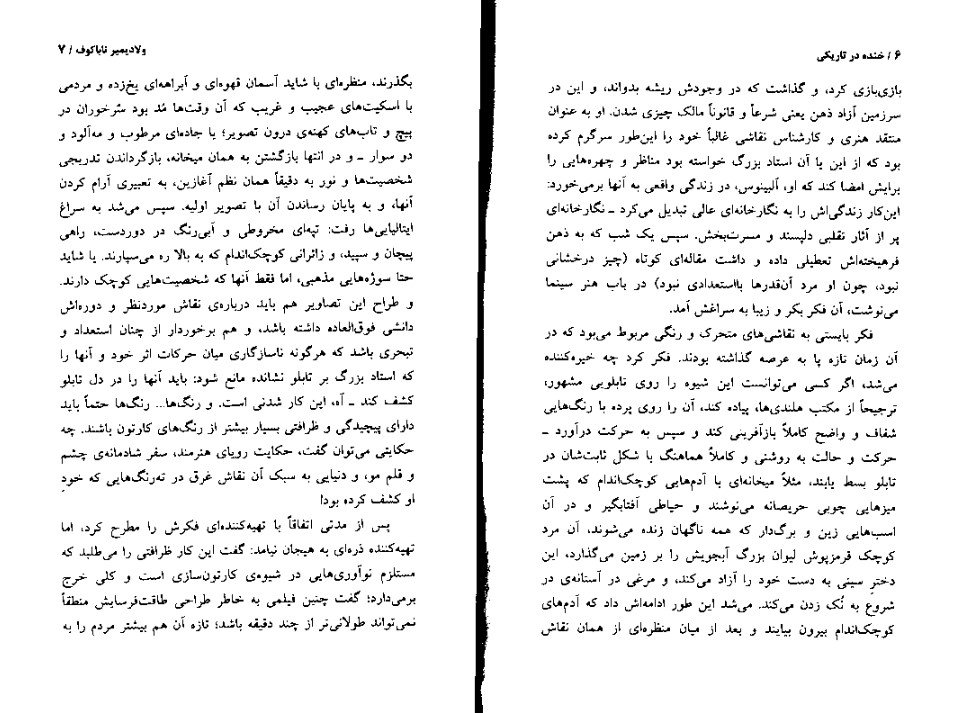 ۶ / خنده در تاریکی
بازی‌بازی کرد، و گذاشت که در وجودش ریشه بدواند، و این در
سرزمین آزاد ذهن یعنی شرعاً و قانوناً مالک چیزی شدن. او به عنوان
منتقد هنری و کارشناس نقاشی غالباً خود را این‌طور سرگرم کرده
بود که از این یا آن استاد بزرگ خواسته بود مناظر و چهره‌هایی را
برایش امضا کند که او، آلبینوس، در زندگی واقعی به آنها برمی‌خورد:
این‌کار زندگی‌اش را به نگارخانه‌ای عالی تبدیل می‌کرد ـ نگارخانه‌ای
پر از آثار تقلبی دلپسند و مسرت‌بخش. سپس یک شب که به ذهن
فرهیخته‌اش تعطیلی داده و داشت مقاله‌ای کوتاه (چیز درخشانی
نبود، چون او مرد آن‌قدرها بااستعدادی نبود) در باب هنر سینما
می‌نوشت، آن فکر بکر و زیبا به سراغش آمد.
فکر بایستی به نقاشی‌های متحرک و رنگی مربوط می‌بود که در
آن زمان تازه پا به عرصه گذاشته بودند. فکر کرد چه خیره‌کننده
می‌شد، اگر کسی می‌توانست این شیوه را روی تابلویی مشهور،
ترجیحاً از مکتب هلندی‌ها، پیاده کند، آن را روی پرده با رنگ‌هایی
شفاف و واضح کاملاً بازآفرینی کند و سپس به حرکت درآورد ـ
حرکت و حالت به روشنی و کاملاً هماهنگ با شکل ثابت‌شان در
تابلو بسط یابند، مثلاً میخانه‌ای با آدم‌هایی کوچک‌اندام که پشت
میزهایی چوبی حریصانه می‌نوشند و حیاطی آفتابگیر و در آن
اسب‌هایی زین و برگ‌دار که همه ناگهان زنده می‌شوند، آن مرد
کوچک قرمزپوش لیوان بزرگ آبجویش را بر زمین می‌گذارد، این
دخترِ سینی به دست خود را آزاد می‌کند، و مرغی در آستانه‌ی در
شروع به نُک زدن می‌کند. می‌شد این طور ادامه‌اش داد که آدم‌های
کوچک‌اندام بیرون بیایند و بعد از میان منظره‌ای از همان نقاش
ولادیمیر ناباکوف / ۷
بگذرند، منظره‌ای با شاید آسمان قهوه‌ای و آبراهه‌ای یخ‌زده و مردمی
با اسکیت‌های عجیب و غریب که آن وقت‌ها مُد بود سُرخوران در
پیچ و تاب‌های کهنه‌ی درون تصویر؛ یا جاده‌ای مرطوب و مه‌آلود و
دو سوار ـ و در انتها بازگشتن به همان میخانه، بازگرداندن تدریجی
شخصیت‌ها و نور به دقیقاً همان نظم آغازین، به تعبیری آرام کردن
آنها، و به پایان رساندن آن با تصویر اولیه. سپس می‌شد به سراغ
ایتالیایی‌ها رفت: تپه‌ای مخروطی و آبی‌رنگ در دوردست، راهی
پیچان و سپید، و زائرانی کوچک‌اندام که به بالا ره می‌سپارند. یا شاید
حتا سوژه‌هایی مذهبی، اما فقط آنها که شخصیت‌هایی کوچک دارند.
و طراح این تصاویر هم باید درباره‌ی نقاش موردنظر و دوره‌اش
دانشی فوق‌العاده داشته باشد، و هم برخوردار از چنان استعداد و
تبحری باشد که هرگونه ناسازگاری میان حرکات اثر خود و آنها را
که استاد بزرگ بر تابلو نشانده مانع شود: باید آنها را در دل تابلو
کشف کند ـ آه، این کار شدنی است. و رنگ‌ها... رنگ‌ها حتماً باید
دارای پیچیدگی و ظرافتی بسیار بیشتر از رنگ‌های کارتون باشند. چه
حکایتی می‌توان گفت، حکایت رویای هنرمند، سفر شادمانه‌ی چشم
و قلم مو، و دنیایی به سبک آن نقاش غرق در ته‌رنگ‌هایی که خودِ
او کشف کرده بود!
پس از مدتی اتفاقاً با تهیه‌کننده‌ای فکرش را مطرح کرد، اما
تهیه‌کننده ذره‌ای به هیجان نیامد: گفت این کار ظرافتی را می‌طلبد که
مستلزم نوآوری‌هایی در شیوه‌ی کارتون‌سازی است و کلی خرج
برمی‌دارد؛ گفت چنین فیلمی به خاطر طراحی طاقت‌فرسایش منطقاً
نمی‌تواند طولانی‌تر از چند دقیقه باشد؛ تازه آن هم بیشتر مردم را به